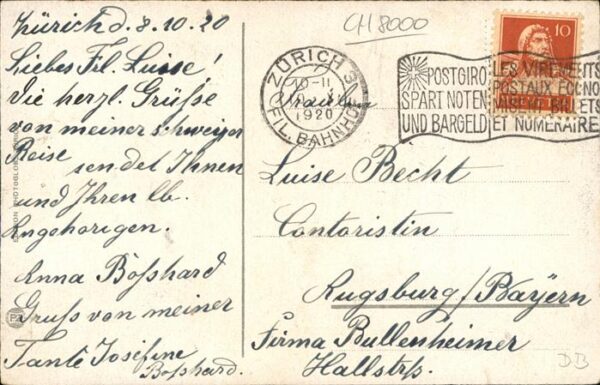 Zürich d. 8.10.20
Liebes Frl. Luise!
Die herzl. Grüsse
von meiner schweizer
Reise sendet Ihnen
und Ihren lb.
Angehörigen.
Anna Boßhard
Gruss von meiner
Tante Josefine
Bosshard.
CH 8000
ZÜRICH 3
1920
FIL. BAHNHOF
POSTGIRO
SPART NOTEN
UND BARGELD
LES VIREMENTS
POSTAUX ECONO
BILLETS
ET NUMÉRAIRE
10
Fräulein
Luise Becht
Contoristin
Augsburg/Bayern
Firma Bullenheimer
Hallstrss.
DB